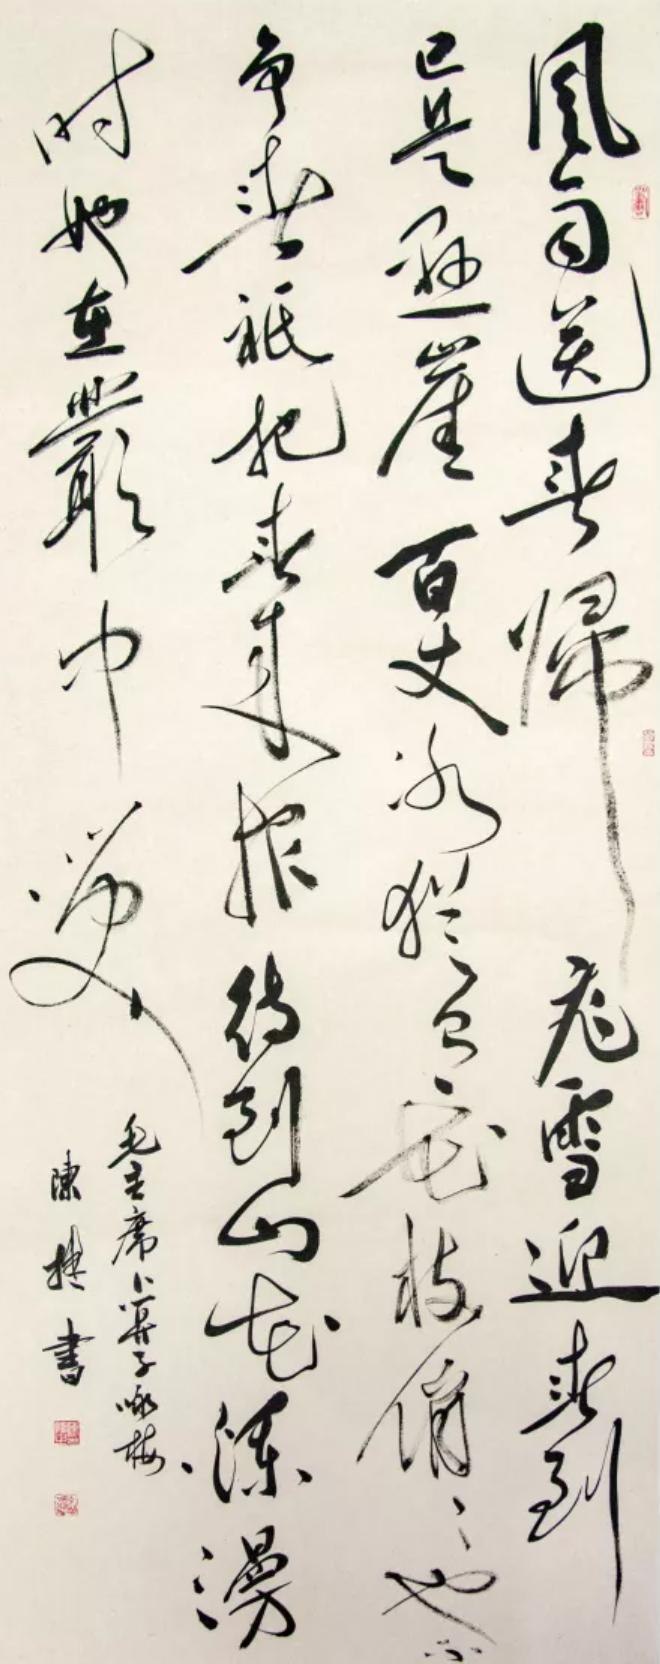 風雨送春歸飛雪迎春到
已是懸崖百丈冰猶有花枝俏〻也不
争春祇把春来報待到山花爛漫
时她在叢中笑
毛主席卜算子咏梅
陳捷書